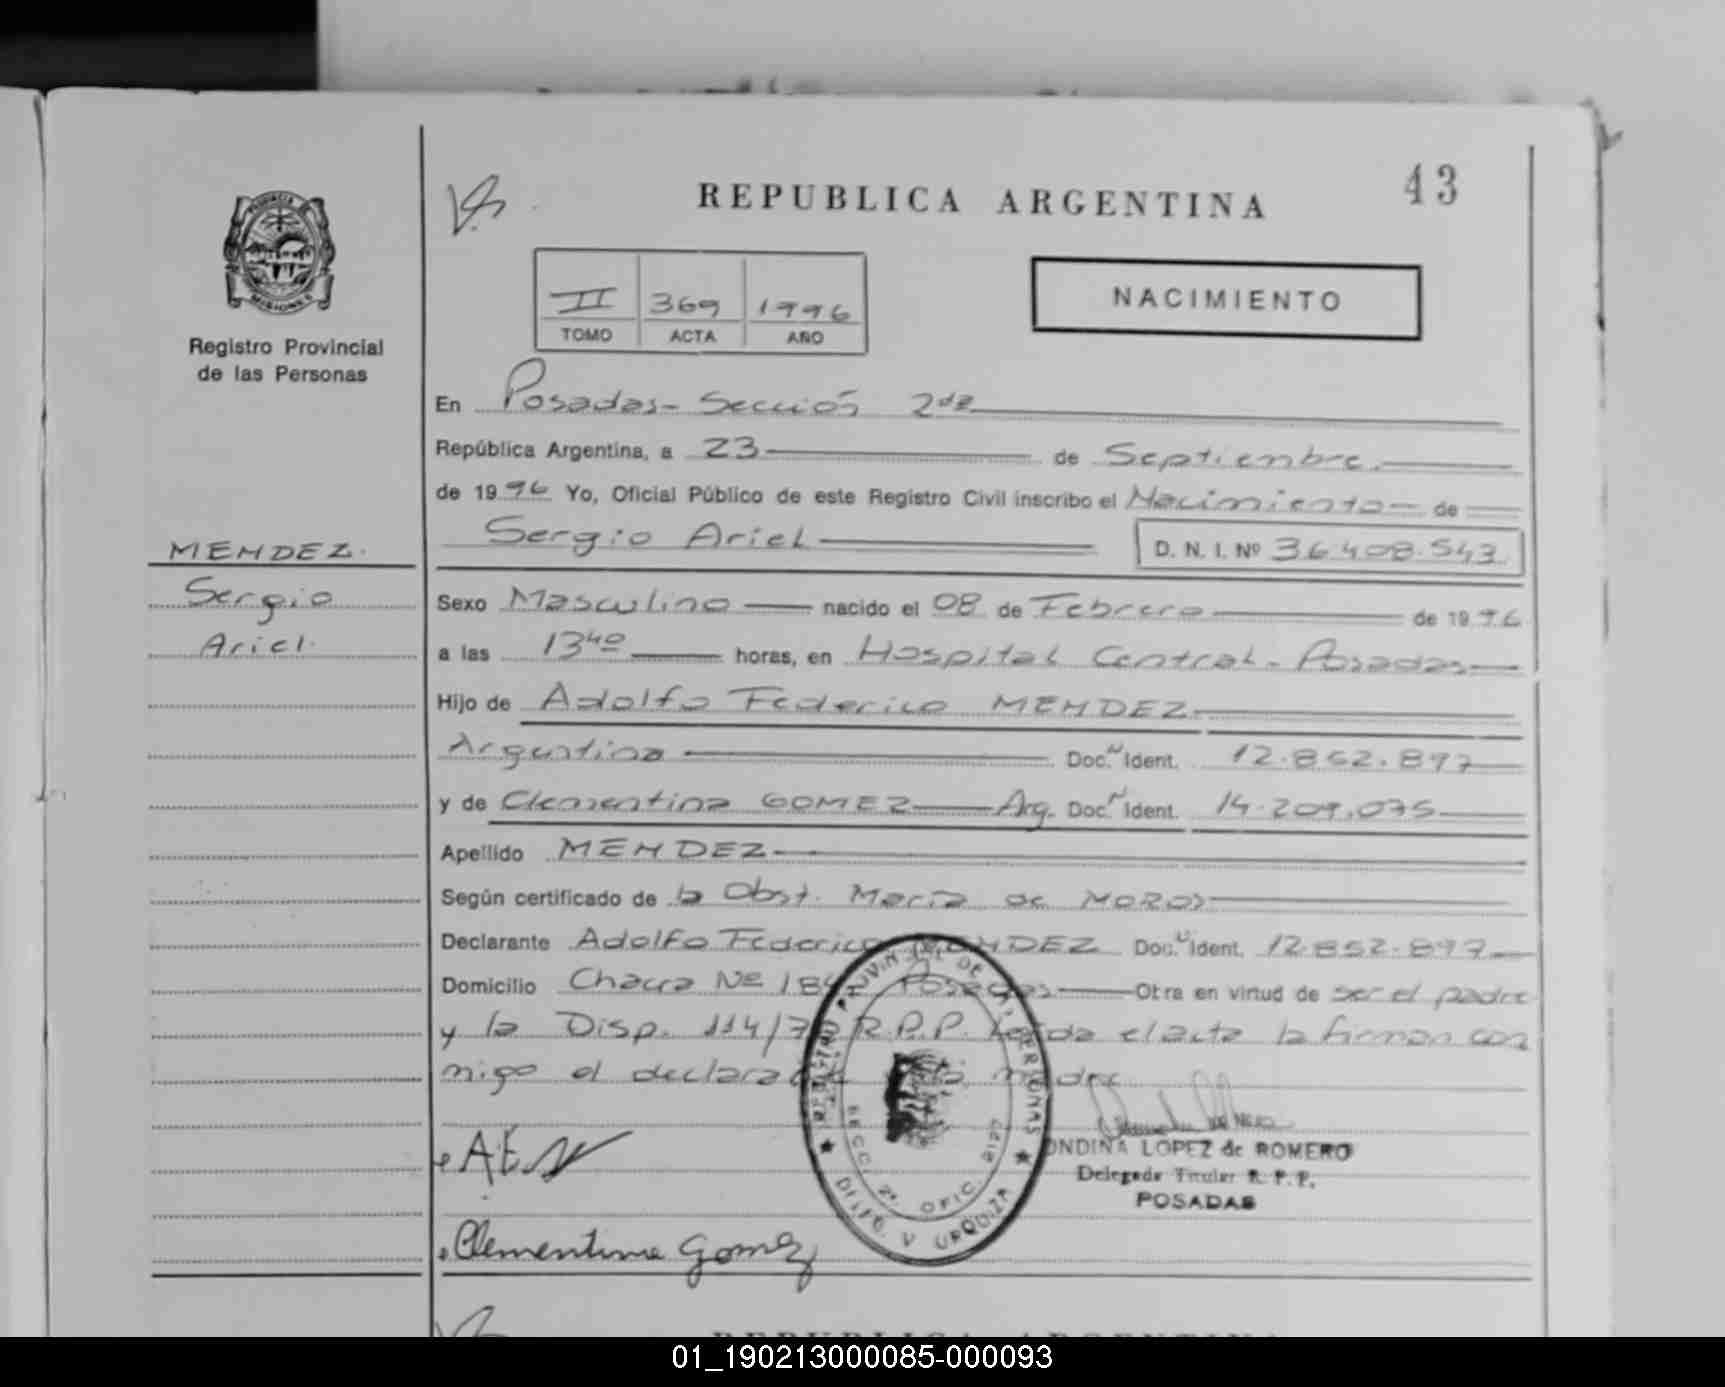 43
REPUBLICA ARGENTINA
PROVINCIA DE
MISIONES
Registro Provincial
de las Personas
II 369 1996
TOMO ACTA AÑO
NACIMIENTO
En Posadas - Sección 2da
República Argentina, a 23 de Septiembre.
de 1996 Yo, Oficial Público de este Registro Civil inscribo el Nacimiento de
Sergio Ariel D. N. I. Nº 36.408.543
MENDEZ.
Sergio
Ariel.
Sexo Masculino nacido el 08 de Febrero de 1996
a las 13 40 horas, en Hospital Central - Posadas
Hijo de Adolfo Federico MENDEZ
Argentina Doc. N Ident. 12.852.897
y de Clementina GOMEZ Arg. Doc. N Ident. 14.209.075
Apellido MENDEZ
Según certificado de la Obst. María de MOROS
Declarante Adolfo Federico MENDEZ Doc. Ident. 12.852.897
Domicilio Chacra Nº 18 Posadas Obra en virtud de ser el padre
y la Disp. 114/7 R.P.P. Leída el acta la firman con
migo el declarante madre
REGISTRO PROVINCIAL DE LAS PERSONAS
SECC. 2ª OFIC. 2127
DPTO. V URQUIZA
ONDINA LOPEZ de ROMERO
Delegada Titular R. P. P.
POSADAS
Clementina Gomez
REPUBLICA ARGENTINA
01_190213000085-000093